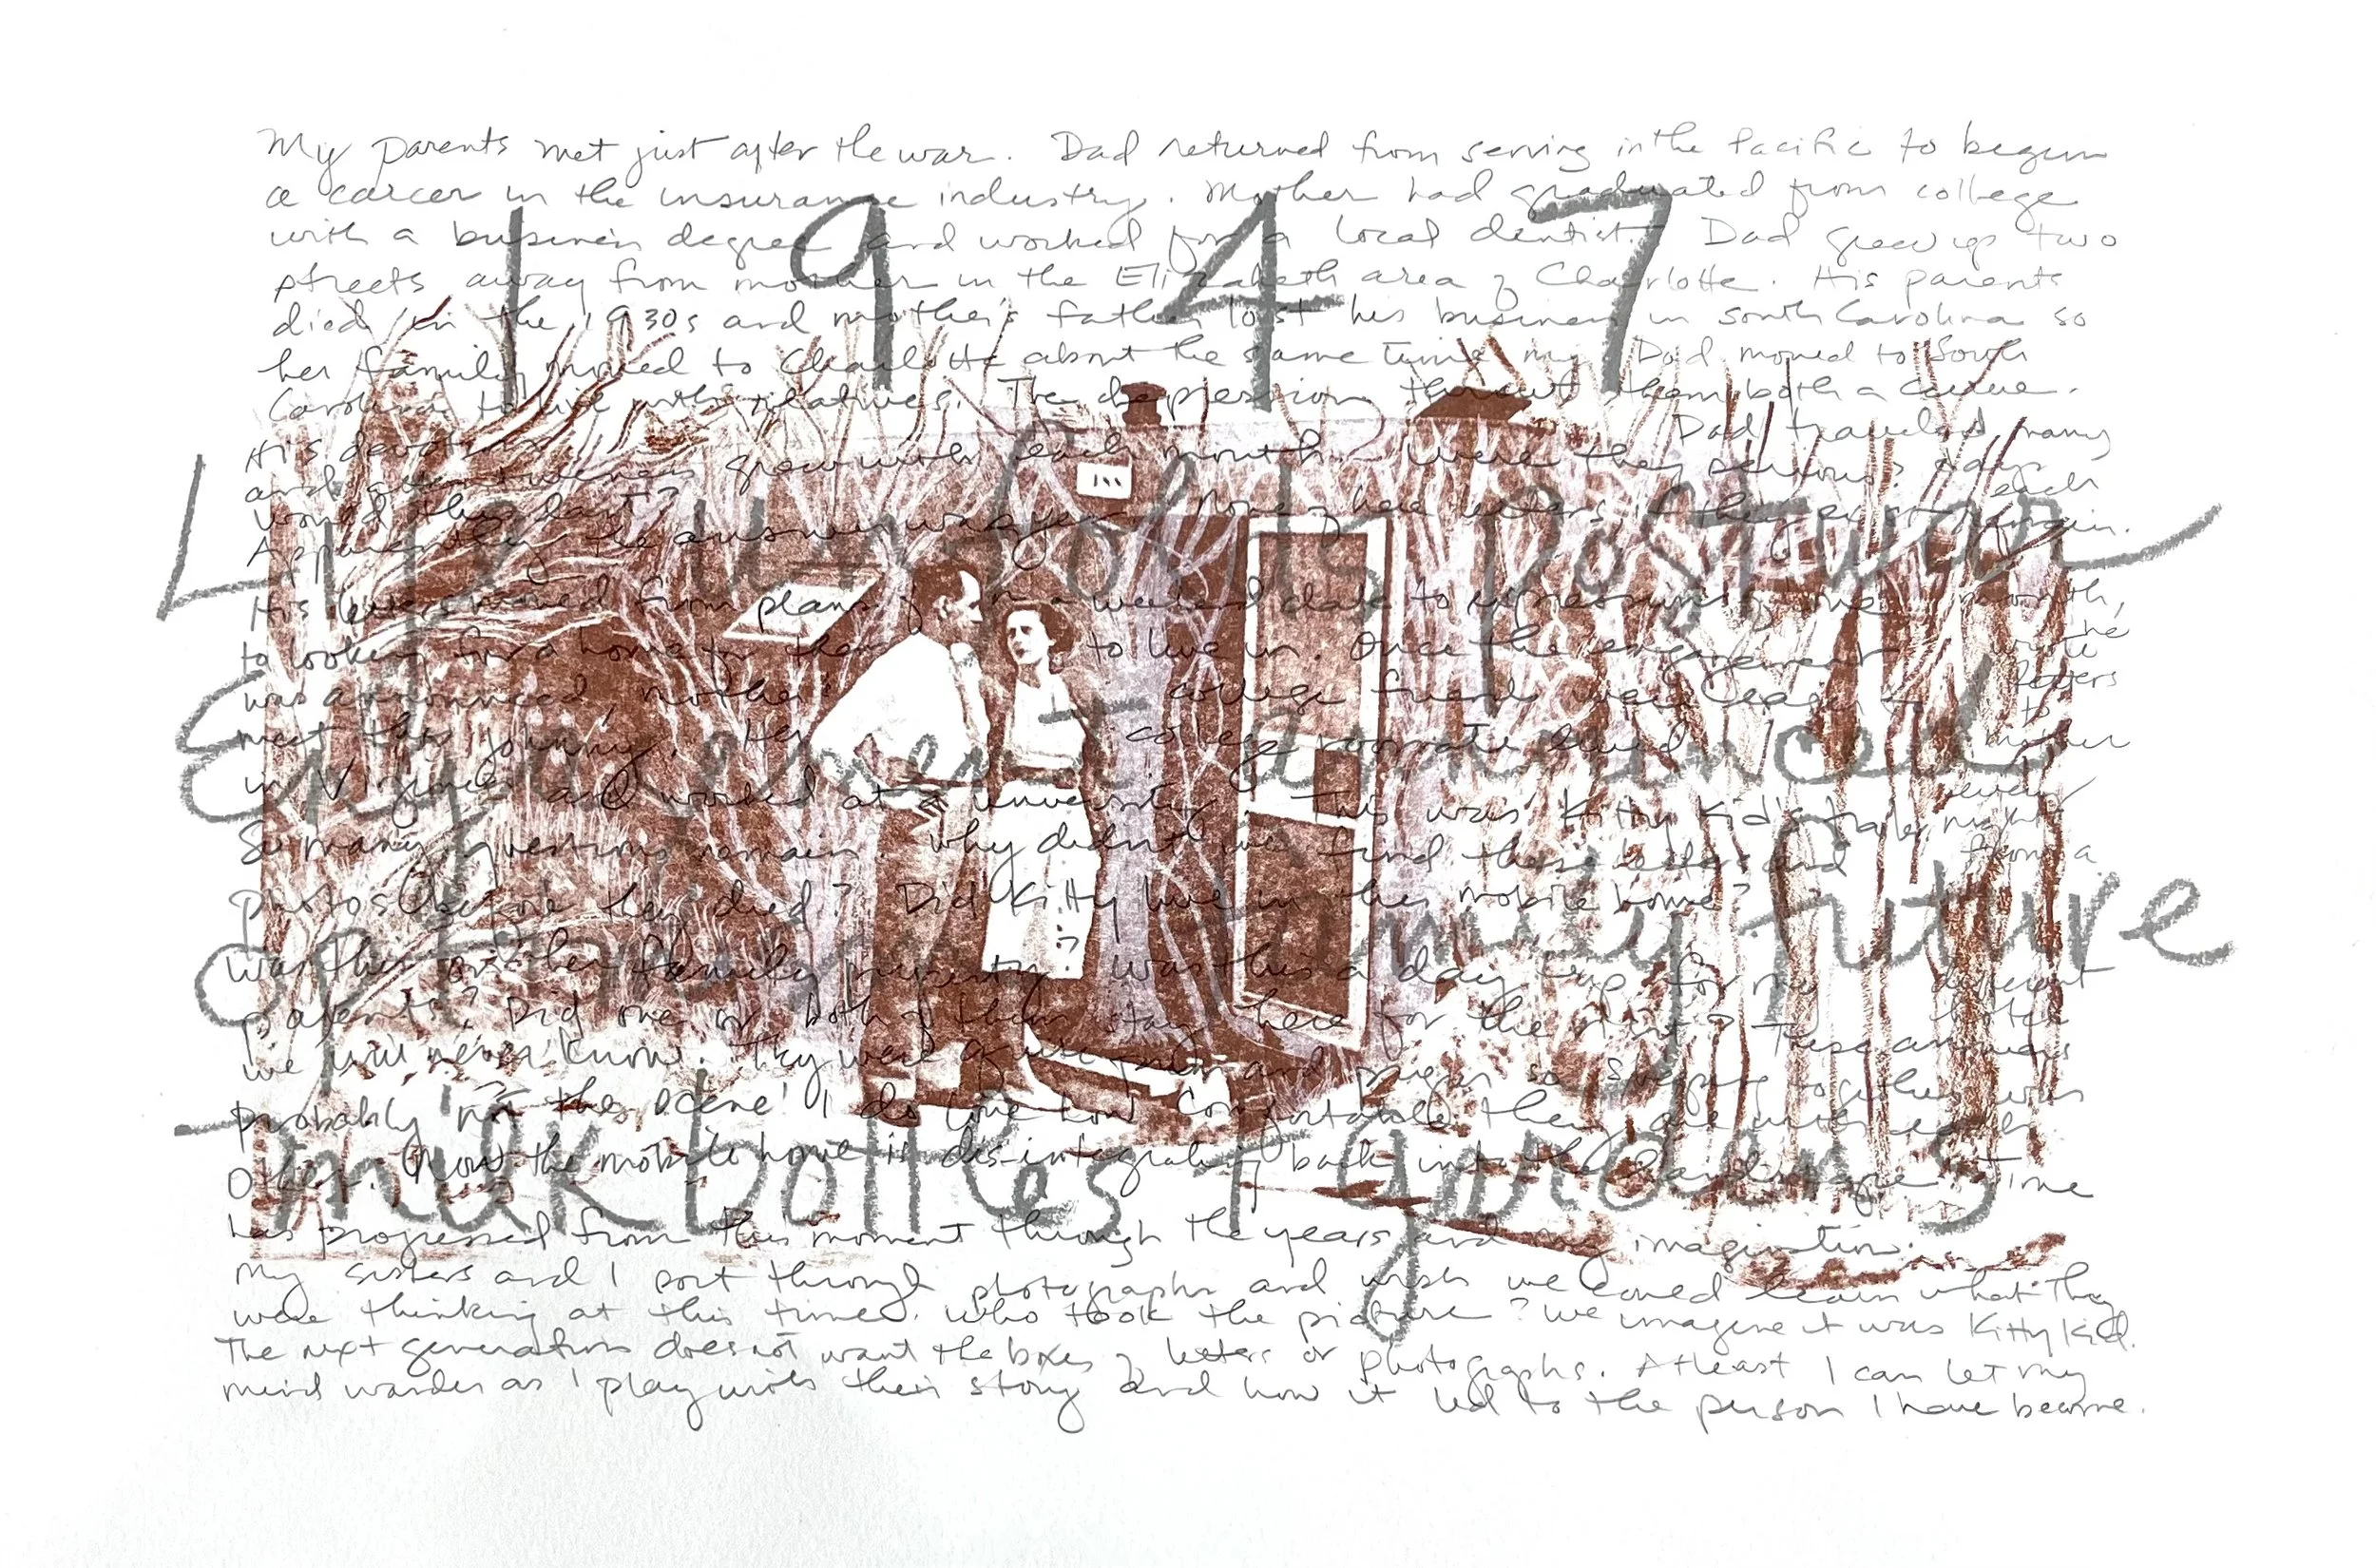 1947
Life unfolds postwar
Engagement announced
optimism family future
milk bottles + gardens
My parents met just after the war. Dad returned from serving in the Pacific to begin
a career in the insurance industry. Mother had graduated from college
with a business degree and worked for a local dentist. Dad grew up two
streets away from mother in the Elizabeth area of Charlotte. His parents
died in the 1930s and mother's father lost his business in South Carolina so
her family moved to Charlotte about the same time my Dad moved to South
Carolina to live with relatives. The depression threw them both a curve.
His Dad traveled many
and grew with each month. Were they serious?
would this last? None of her letters, if they exist, remain.
Apparently the answer was yes
His letters moved from plans for a weekend date to expressions of love
to looking for a home for them to live in. Once the engagement
was announced, mother's college friends were eager to
meet this Johnny. Her college roommate lived
in Virginia and worked at a university. This was Kitty Kid's trailer
So many questions remain. Why didn't we find these letters and
photos before they died? Did Kitty live in this mobile home?
Was this on her family property? Was this a day trip for my
parents? Did one or both of them stay here for the night? These answers
we will never know. They were and so sleeping together was
probably not the scene! I do love how comfortable they are with each
other. Now the mobile home is disintegrating back into the landscape. Time
has progressed from this moment through the years and my imagination.
My sisters and I sort through photographs and wish we could learn what they
were thinking at this time. Who took the picture? We imagine it was Kitty Kid.
The next generation does not want the boxes of letters or photographs. At least I can let my
mind wander as I play with their story and how it led to the person I have become.
days
each
month,
he
wrote
letters
to
mother
every
night
from a
different
hotel